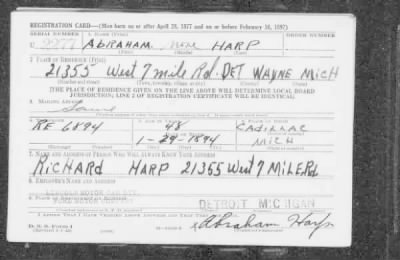 REGISTRATION CARD—(Men born on or after April 28, 1877 and on or before February 16, 1897)
SERIAL NUMBER 1. NAME (Print) ORDER NUMBER
U ABRAHAM None HARP
(First) (Middle) (Last)
2. PLACE OF RESIDENCE (Print)
21355 West 7 mile Rd. DET WAYNE MICH
(Number and street) (Town, township, village, or city) (County) (State)
[THE PLACE OF RESIDENCE GIVEN ON THE LINE ABOVE WILL DETERMINE LOCAL BOARD
JURISDICTION; LINE 2 OF REGISTRATION CERTIFICATE WILL BE IDENTICAL]
3. MAILING ADDRESS
Same
RE 6894 48 CADILLAC
1-29-1894 MICH
7. NAME AND ADDRESS OF PERSON WHO WILL ALWAYS KNOW YOUR ADDRESS
RICHARD HARP 21355 West 7 MILE Rd
8. EMPLOYER'S NAME AND ADDRESS
LINCOLN MOTOR CAR DIV.
FORD MOTOR COMPANY
DETROIT MICHIGAN
I AFFIRM THAT I HAVE VERIFIED ABOVE ANSWERS AND THAT THEY
D. S. S. Form 1
x Abraham Harp